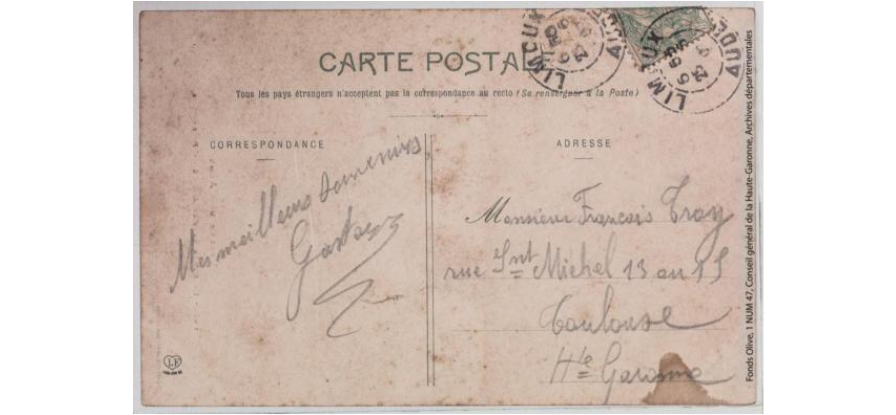 CARTE POSTALE
Tous les pays étrangers n'acceptent pas la correspondance au recto (Se renseigner à la Poste)
CORRESPONDANCE
Mes meilleurs souvenirs
ADRESSE
Monsieur François Tray
rue Snt Michel 13 ou 15
Toulouse
Hte Garonne
LIMOUX
AUDE
LIMOUX
AUDE
Fonds Olive, 1 NUM 47, Conseil général de la Haute-Garonne, Archives départementales